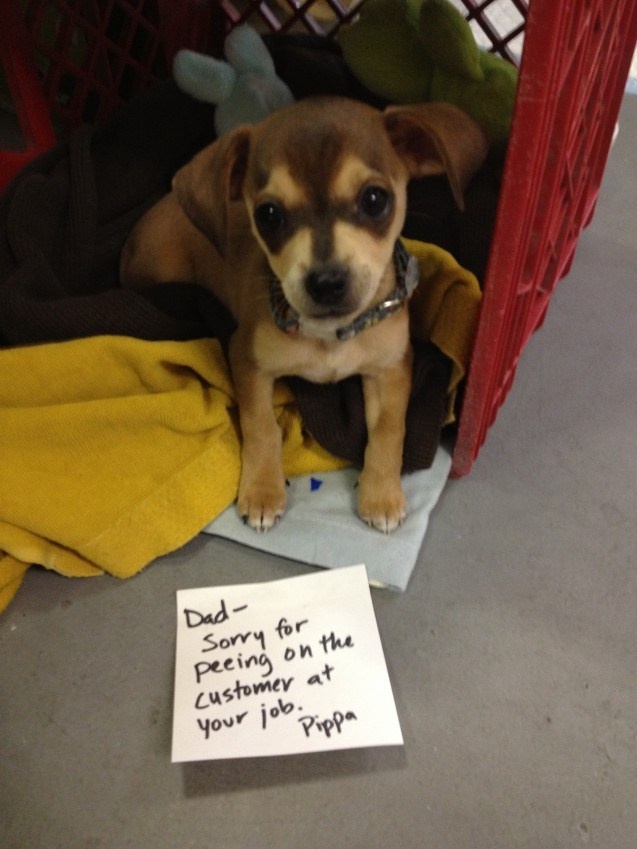 Dad-
Sorry for
peeing on the
customer at
your job.
Pippa